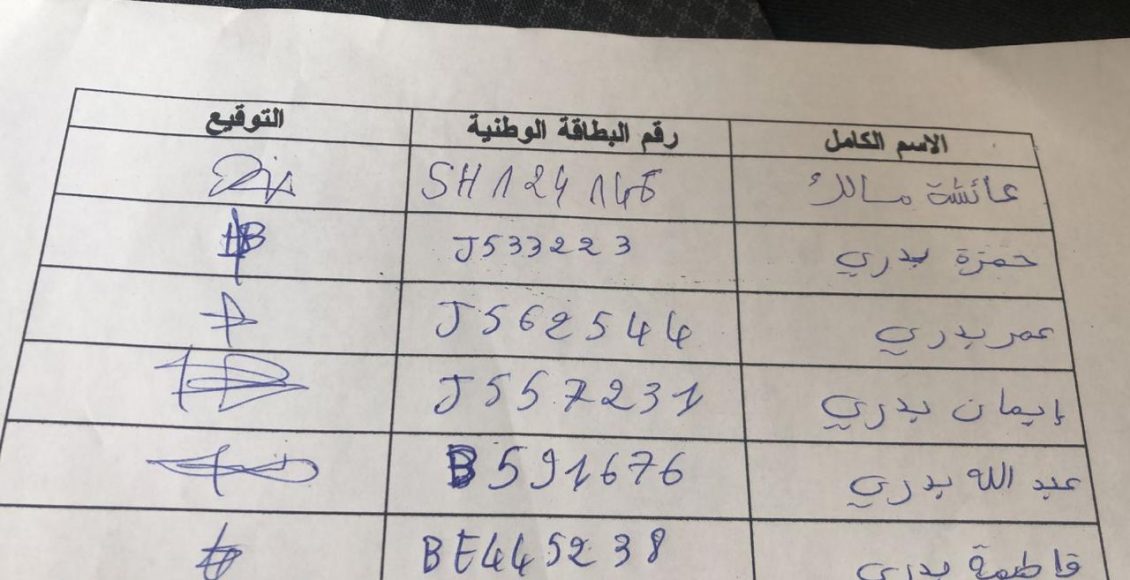 الاسم الكامل رقم البطاقة الوطنية التوقيع
عائشة مالك SH124146
حمزة بدري J533223
عمر بدري J562544
إيمان بدري J557231
عبد الله بدري B591676
فاطمة بدري BE445238